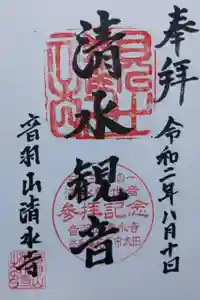 奉拝
令和二年八月十日
清水観音
音羽山清水寺
参拝記念